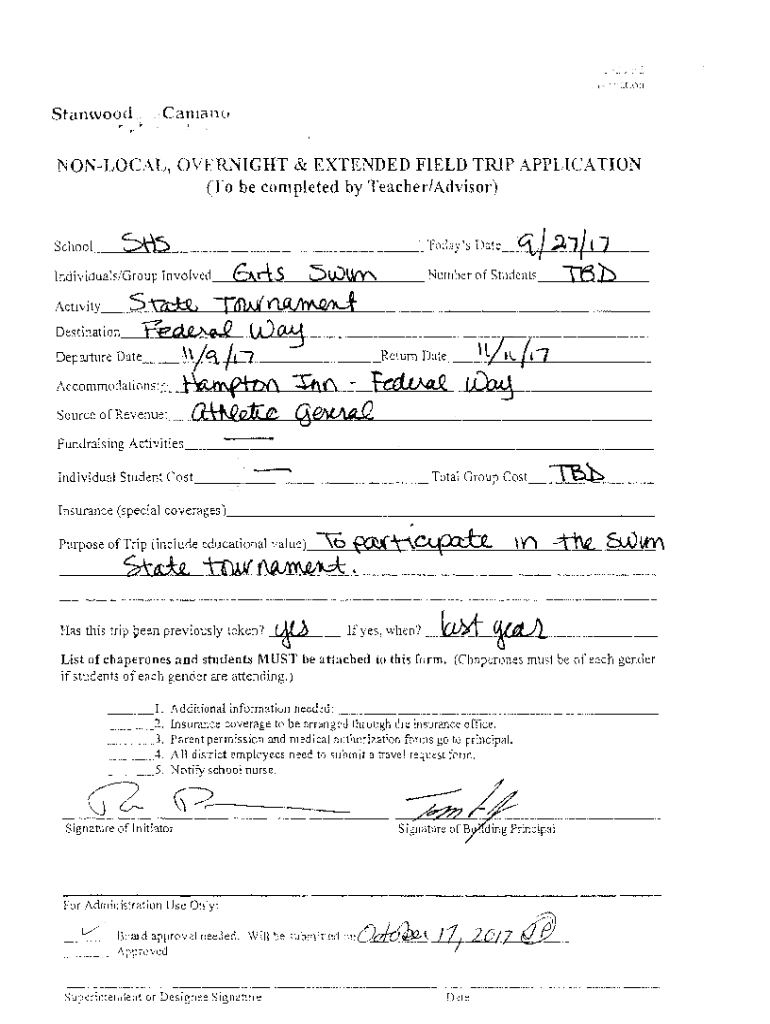 Stanwood Camano
NON-LOCAL, OVERNIGHT & EXTENDED FIELD TRIP APPLICATION
(To be completed by Teacher/Advisor)
School SHS Today's Date 9/27/17
Individuals/Group Involved Girls Swim Number of Students TBD
Activity State Tournament
Destination Federal Way
Departure Date 11/9/17 Return Date 11/11/17
Accommodations: Hampton Inn - Federal Way
Source of Revenue: Athletic General
Fundraising Activities —
Individual Student Cost — Total Group Cost TBD
Insurance (special coverages)
Purpose of Trip (include educational value) To participate in the Swim
State tournament.
Has this trip been previously taken? yes If yes, when? last year
List of chaperones and students MUST be attached to this form. (Chaperones must be of each gender
if students of each gender are attending.)
1. Additional information needed:
2. Insurance coverage to be arranged through the insurance office.
3. Parent permission and medical authorization forms go to principal.
4. All district employees need to submit a travel request form.
5. Notify school nurse.
Signature of Initiator Signature of Building Principal
For Administration Use Only:
✓ Board approval needed. Will be submitted on October 17, 2017
Approved
Superintendent or Designee Signature Date